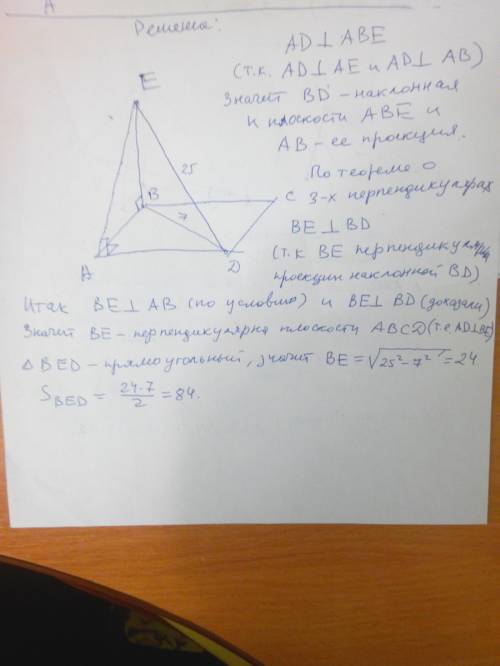 A
Решение:
AD⊥ABE
(т.к. AD⊥AE и AD⊥AB)
Значит BD - наклонная
к плоскости ABE и
AB - ее проекция.
По теореме о
3-х перпендикулярах
BE⊥BD
(т.к BE перпендикулярна
проекции наклонной BD)
E
25
B
7
C
A
D
Итак BE⊥AB (по условию) и BE⊥BD (доказали)
Значит BE - перпендикулярна плоскости ABCD (т.е. AD⊥BE)
△ BED - прямоугольный, значит BE = √25²-7² = 24
S BED = 24·7/2 = 84.